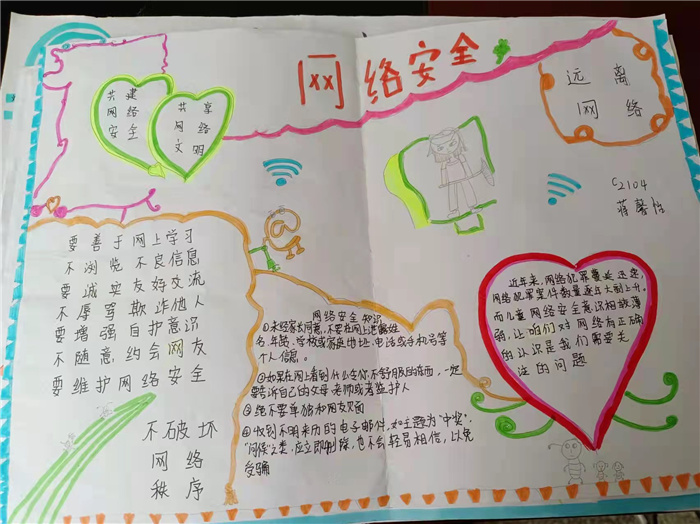 网络安全
共建
网络
安全
共享
网络
文明
远离
网络
C2104
蒋馨怡
要善于网上学习
不浏览不良信息
要诚实友好交流
不辱骂欺诈他人
要增强自护意识
不随意约会网友
要维护网络安全
不破坏
网络
秩序
网络安全知识
①未经家长同意,不要在网上泄露姓
名.年龄.学校或家庭地址.电话或手机号等
个人信息。
②如果在网上看到什么令你不舒服的东西,一定
要告诉自己的父母.老师或者监护人
③绝不要单独和网友见面
④收到不明来历的电子邮件,如主题为“中奖”.
“问候”之类,应立即删除,也不会轻易相信,以免
受骗
近年来,网络犯罪蔓延迅速
网络犯罪案件数量逐年大幅上升.
而儿童网络安全意识相放薄
弱,让咱们对网络有正确
的认识是我们需要关
注的问题